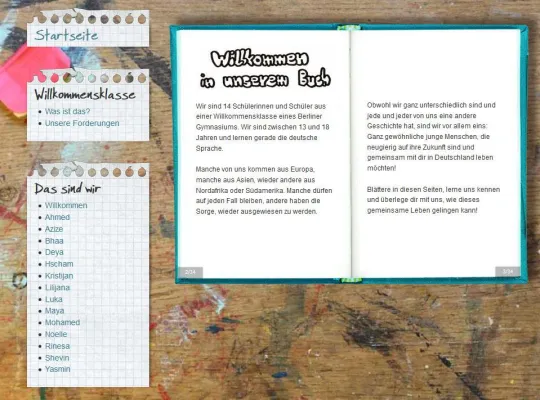 Startseite
Willkommensklasse
Was ist das?
Unsere Forderungen
Das sind wir
Willkommen
Ahmed
Azize
Bhaa
Deya
Hscham
Kristijan
Lilijana
Luka
Maya
Mohamed
Noelle
Rinesa
Shevin
Yasmin
Willkommen
in unserem Buch
Wir sind 14 Schülerinnen und Schüler aus
einer Willkommensklasse eines Berliner
Gymnasiums. Wir sind zwischen 13 und 18
Jahren und lernen gerade die deutsche
Sprache.
Manche von uns kommen aus Europa,
manche aus Asien, wieder andere aus
Nordafrika oder Südamerika. Manche dürfen
auf jeden Fall bleiben, andere haben die
Sorge, wieder ausgewiesen zu werden.
2/34
Obwohl wir ganz unterschiedlich sind und
jede und jeder von uns eine andere
Geschichte hat, sind wir vor allem eins:
Ganz gewöhnliche junge Menschen, die
neugierig auf ihre Zukunft sind und
gemeinsam mit dir in Deutschland leben
möchten!
Blättere in diesen Seiten, lerne uns kennen
und überlege dir mit uns, wie dieses
gemeinsame Leben gelingen kann!
3/34